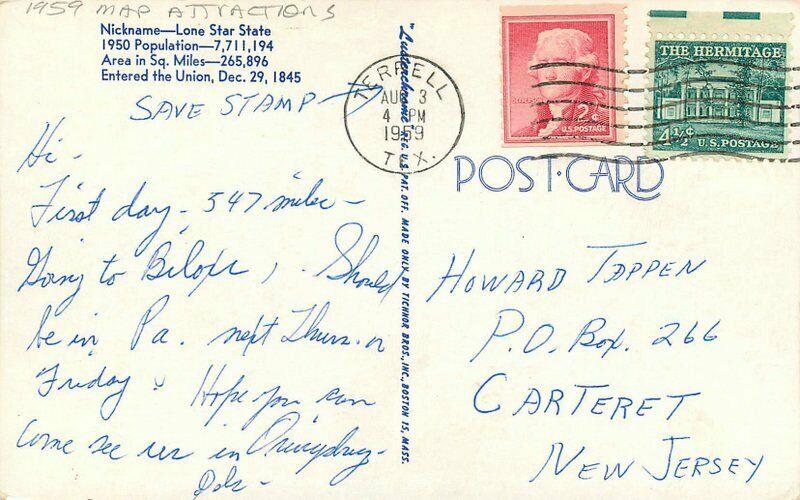 1959 MAP ATTRACTIONS
Nickname—Lone Star State
1950 Population—7,711,194
Area in Sq. Miles—265,896
Entered the Union, Dec. 29, 1845
SAVE STAMP →
Hi -
First day - 547 miles -
Going to Biloxi, . Should
be in Pa. next Thurs. or
Friday. Hope you can
come see us in
"Lusterchrome" REG. U.S. PAT. OFF. MADE ONLY BY TICHNOR BROS., INC., BOSTON 15, MASS.
TERRELL
AUG 3
4 PM
1959
TEX.
2¢
U.S. POSTAGE
THE HERMITAGE
4½¢
U.S. POSTAGE
POST-CARD
HOWARD TAPPEN
P.O. Box. 266
CARTERET
NEW JERSEY